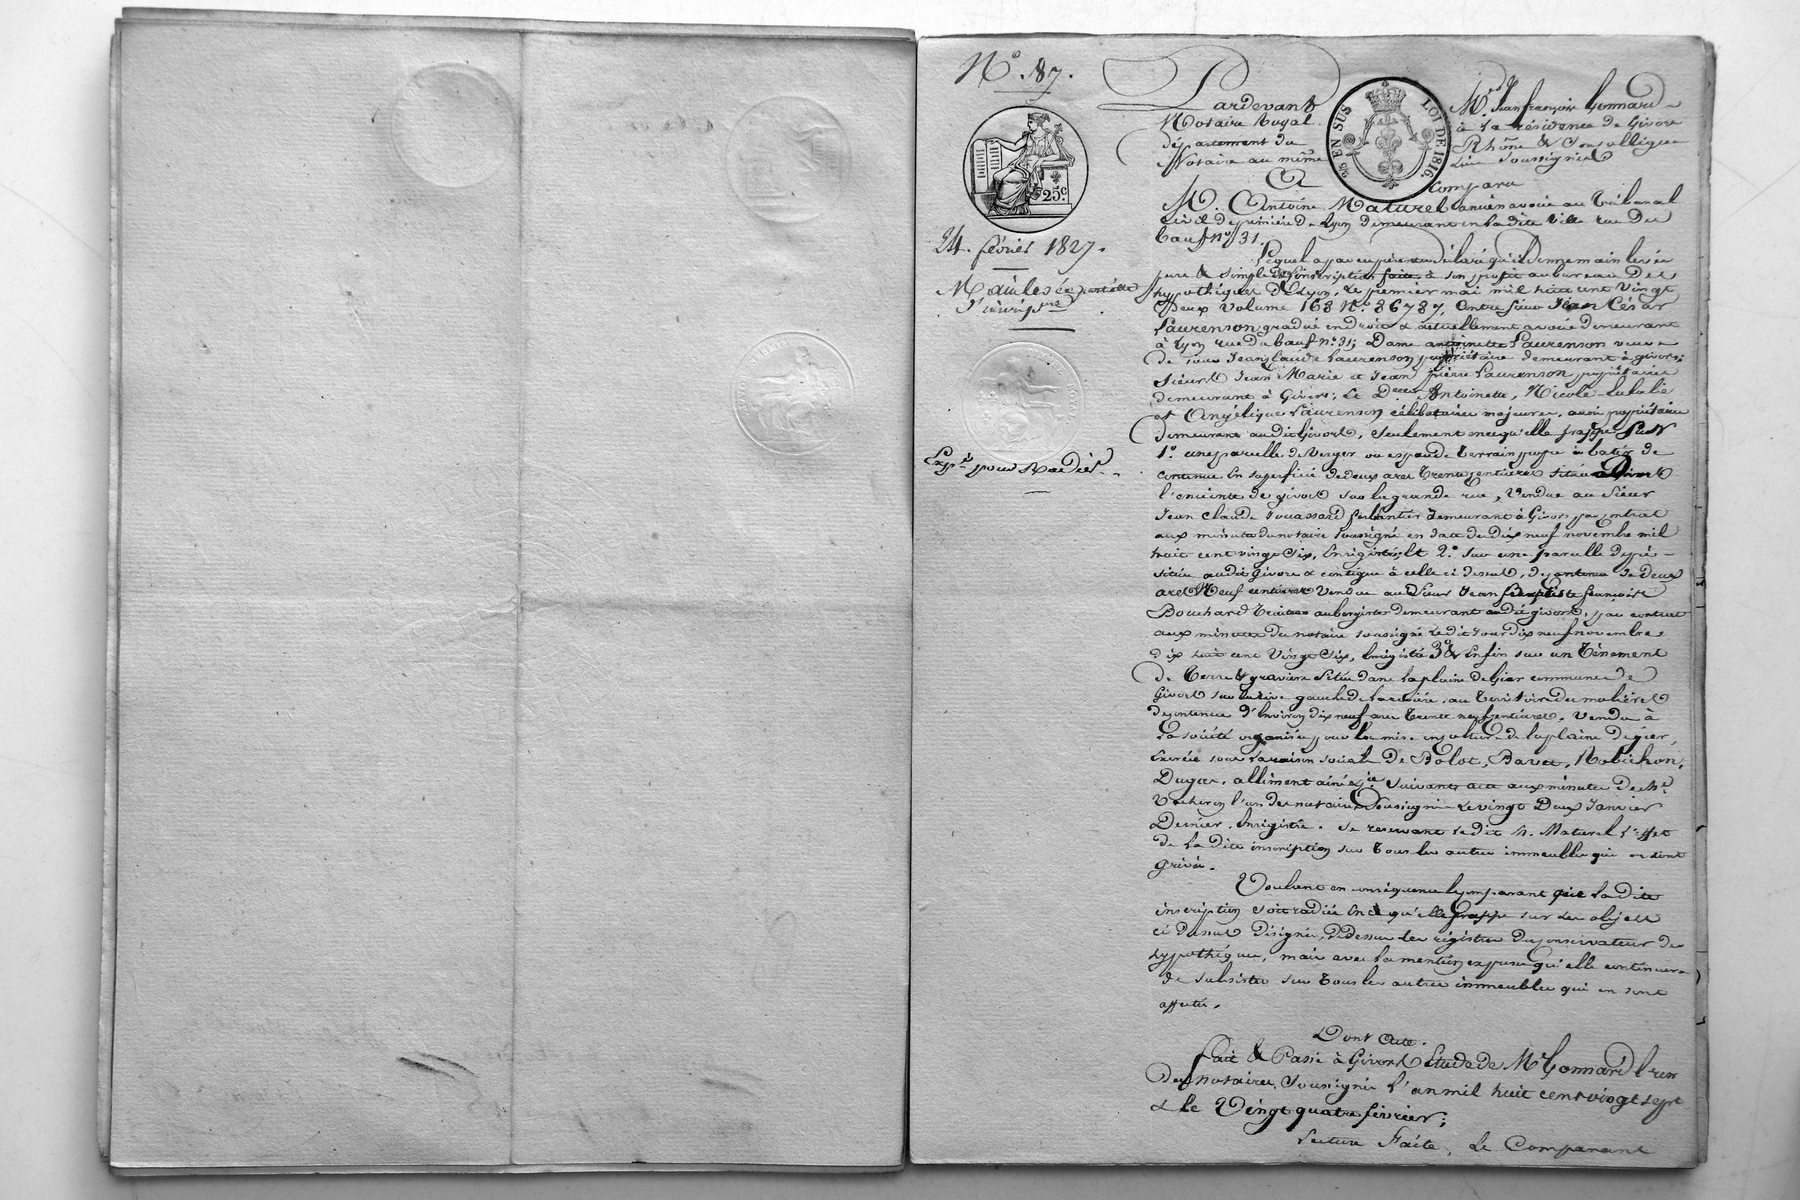 N.º 87.
25.c
24. février 1827.
Mainlevée partielle
d'inscrip.on
Exp.é pour Radier
2/5 EN SUS LOI DE 1816.
Pardevant M.e Jean françois Gonnard
Notaire Royal à la résidence de Givors
département du Rhône & son collègue
Notaire au même lieu soussignés
Comparu
M. Antoine Maturel ancien avoué au Tribunal
civil de première de Lyon demeurant en la dite ville rue du
bœuf n.º 31.
Lequel a par ces déclaré qu'il donne main levée
pure & simple de l'inscription faite à son profit au bureau des
hypothèques de Lyon, le premier mai mil huit cent vingt
deux volume 163 N.º 36737, Contre sieur Jean César
Laurenson gradué en droit & actuellement avoué demeurant
à Lyon rue du bœuf n.º 31; Dame antoinette Laurenson veuve
de sieur Jean Claude Laurenson propriétaire demeurant à givors;
sieurs Jean Marie et Jean pierre Laurenson propriétaires
demeurant à Givors; Le D.elles Antoinette, Nicole Eulalie
et Angélique Laurenson célibataires majeures, aussi propriétaires
demeurant audit Givors, seulement en ce qu'elle frappe Sur
1.º une parcelle de Verger ou espace de terrain propre à batir de
contenue en superficie de deux ares trente centiares située
l'enceinte de givors sur la grande rue, Vendue au sieur
Jean Claude ferblantier demeurant à Givors par contrat
aux minutes du notaire soussigné en date du dix neuf novembre mil
huit cent vingt Six, Enregistré; 2.º sur une parcelle de pré
située audit Givors & contigue à celle ci dessus, de contenue de deux
ares Neuf centiares Vendue au Sieur Jean Baptiste francois
Bouchard aubergiste demeurant audit givors, par contrat
aux minutes du notaire soussigné le dit jour dix neuf novembre
dix huit cent Vingt Six, Enregistré 3.º & Enfin sur un Ténement
de Terre & graviere Située dans la plaine de Gier commune de
Givors sur la rive gauche de la rivière, au territoire des
de contenue d'Environ dix neuf ares Trente neuf centiares, Vendu à
la société organisée pour la mise en culture de la plaine de gier,
Exercée sous la raison sociale de Bolot, Bavet, Robichon,
Dugas, alliment ainé & c.ie suivant acte aux minutes de M.e
l'un des notaires Soussignés Le vingt Deux Janvier
Dernier, Enregistré. Se réservant le dit S. Maturel l'effet
de la dite inscription sur Tous les autres immeubles qui en sont
grévés.
Voulant en conséquence le comparant que la dite
inscription soit radiée En ce qu'elle frappe sur les objets
ci dessus désignés, de dessus les régistres du conservateur des
hypothèques, mais avec la mention expresse qu'elle continuera
de subsister sur Tous les autres immeubles qui en sont
affectés.
Dont acte.
Fait & Passé à Givors Etude de M.e Gonnard l'un
des notaires Soussignés l'an mil huit cent vingt sept
& le Vingt quatre février;
Lecture Faite, Le Comparant